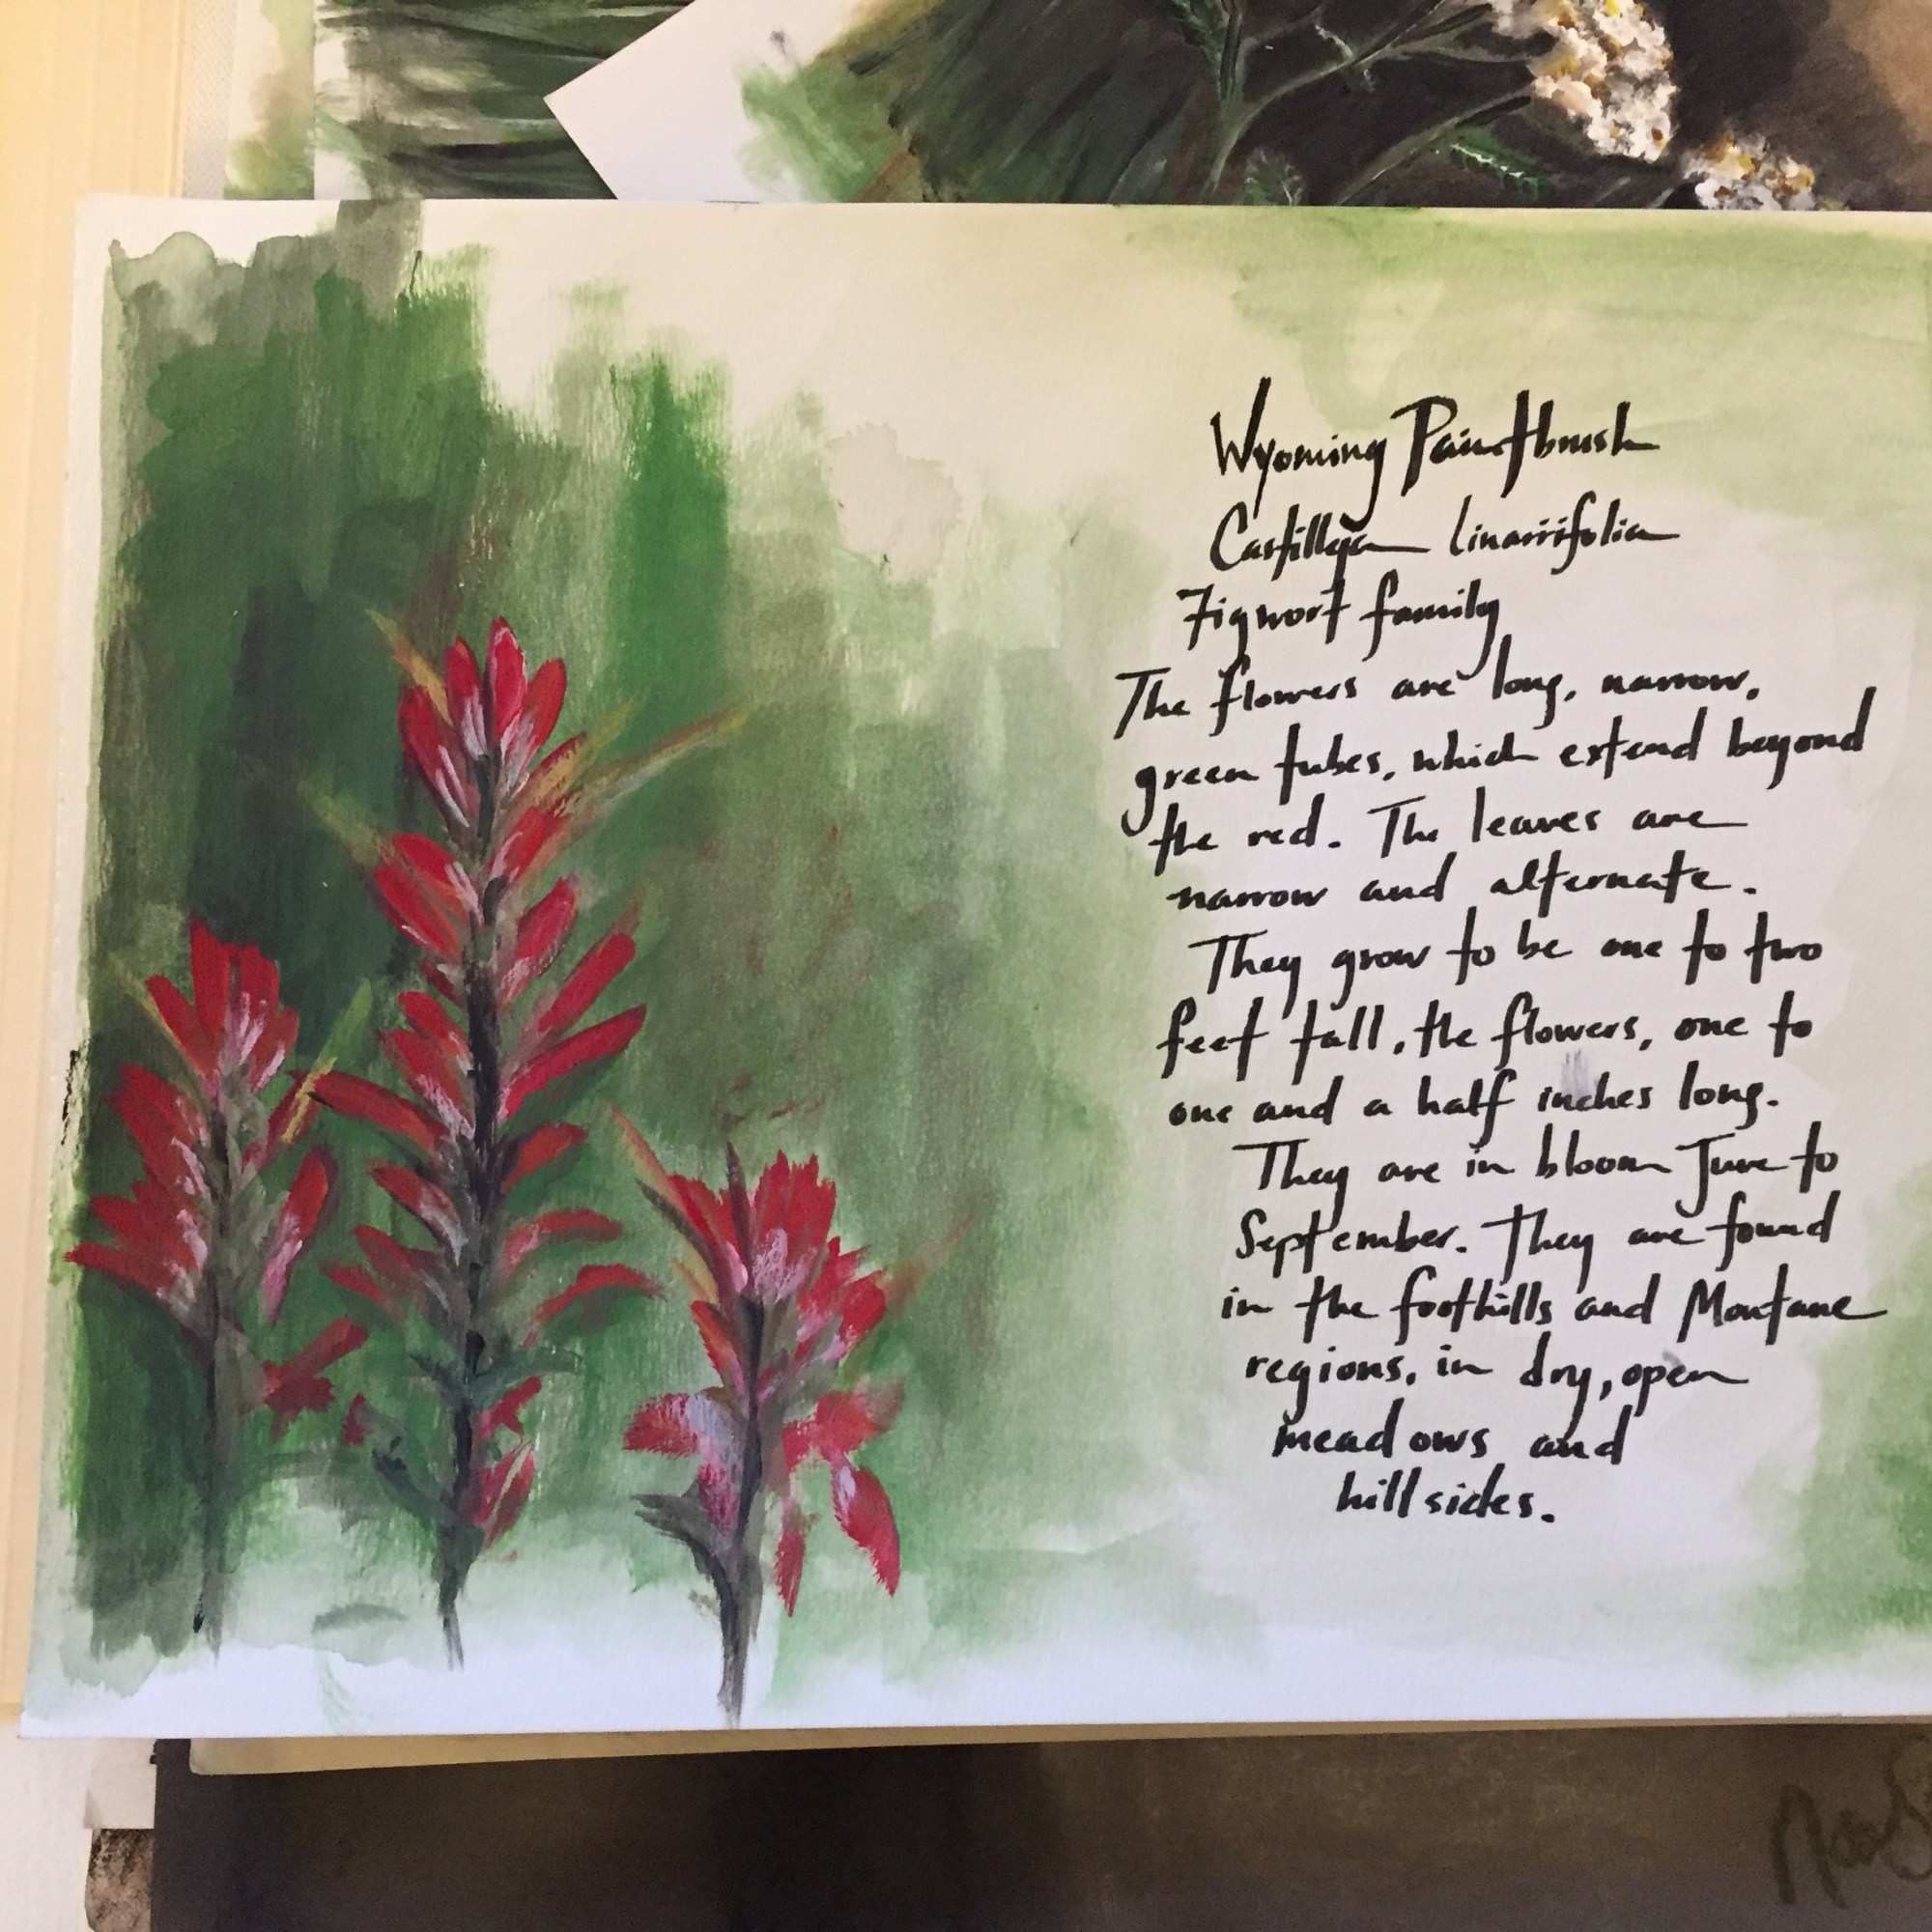 Wyoming Paintbrush
Castilleja linariifolia
Figwort family
The flowers are long, narrow,
green tubes, which extend beyond
the red. The leaves are
narrow and alternate.
They grow to be one to two
feet tall, the flowers, one to
one and a half inches long.
They are in bloom June to
September. They are found
in the foothills and Montane
regions, in dry, open
meadows and
hillsides.